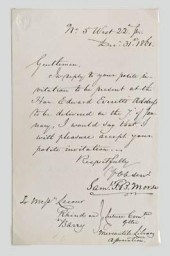 No 5 West 22d St.
Dec. 31st 1861.
Gentlemen,
In reply to your polite in-
vitation to be present at the
Hon Edward Everett's Address
to be delivered on the 7th of Jan-
uary, I would say that I
with pleasure accept your
polite invitation.
Respectfully
Yr Ob Servt
Saml. F. B. Morse
To Messrs
Barry
Lecture Comtee
of the
Mercantile Library
Association